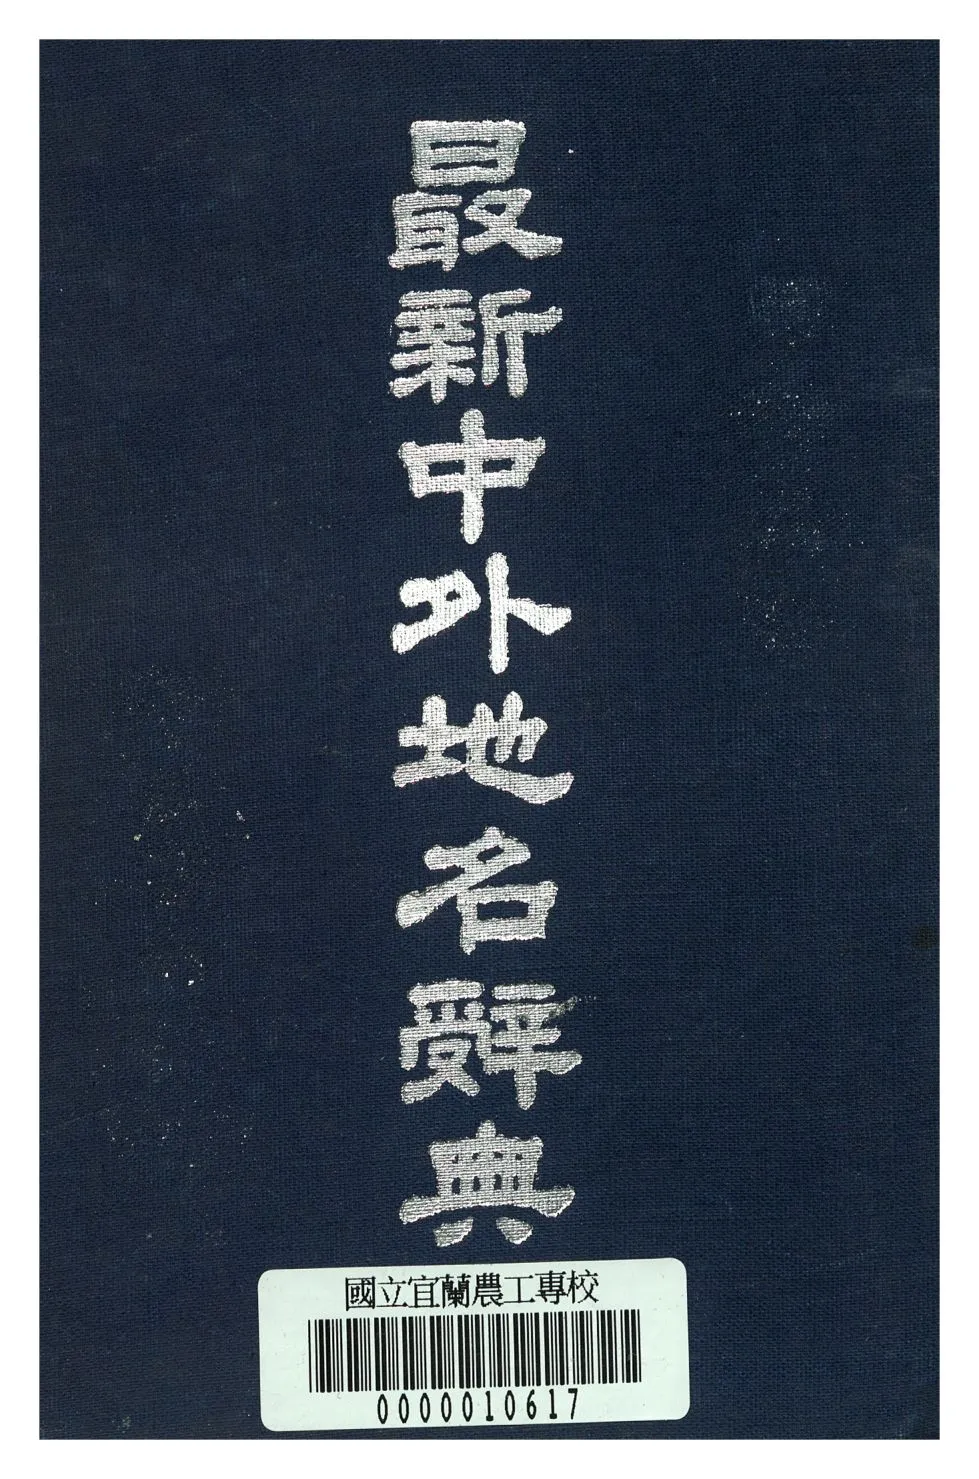 最新中外地名辭典
國立宜蘭農工專校
0000010617